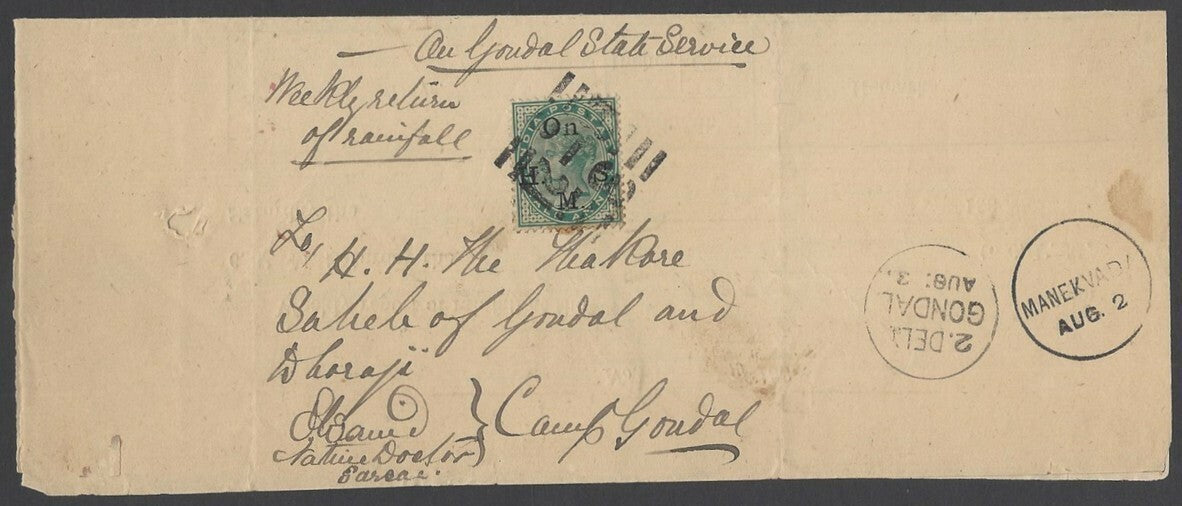 On Gondal State Service
Weekly return
of rainfall
On
H. S.
M.
To,
H. H. The Thakore
Saheb of Gondal and
Dhoraji
Camp Gondal
Native Doctor
2. DEL.
GONDAL
AUG. 3
MANEKVADA
AUG. 2